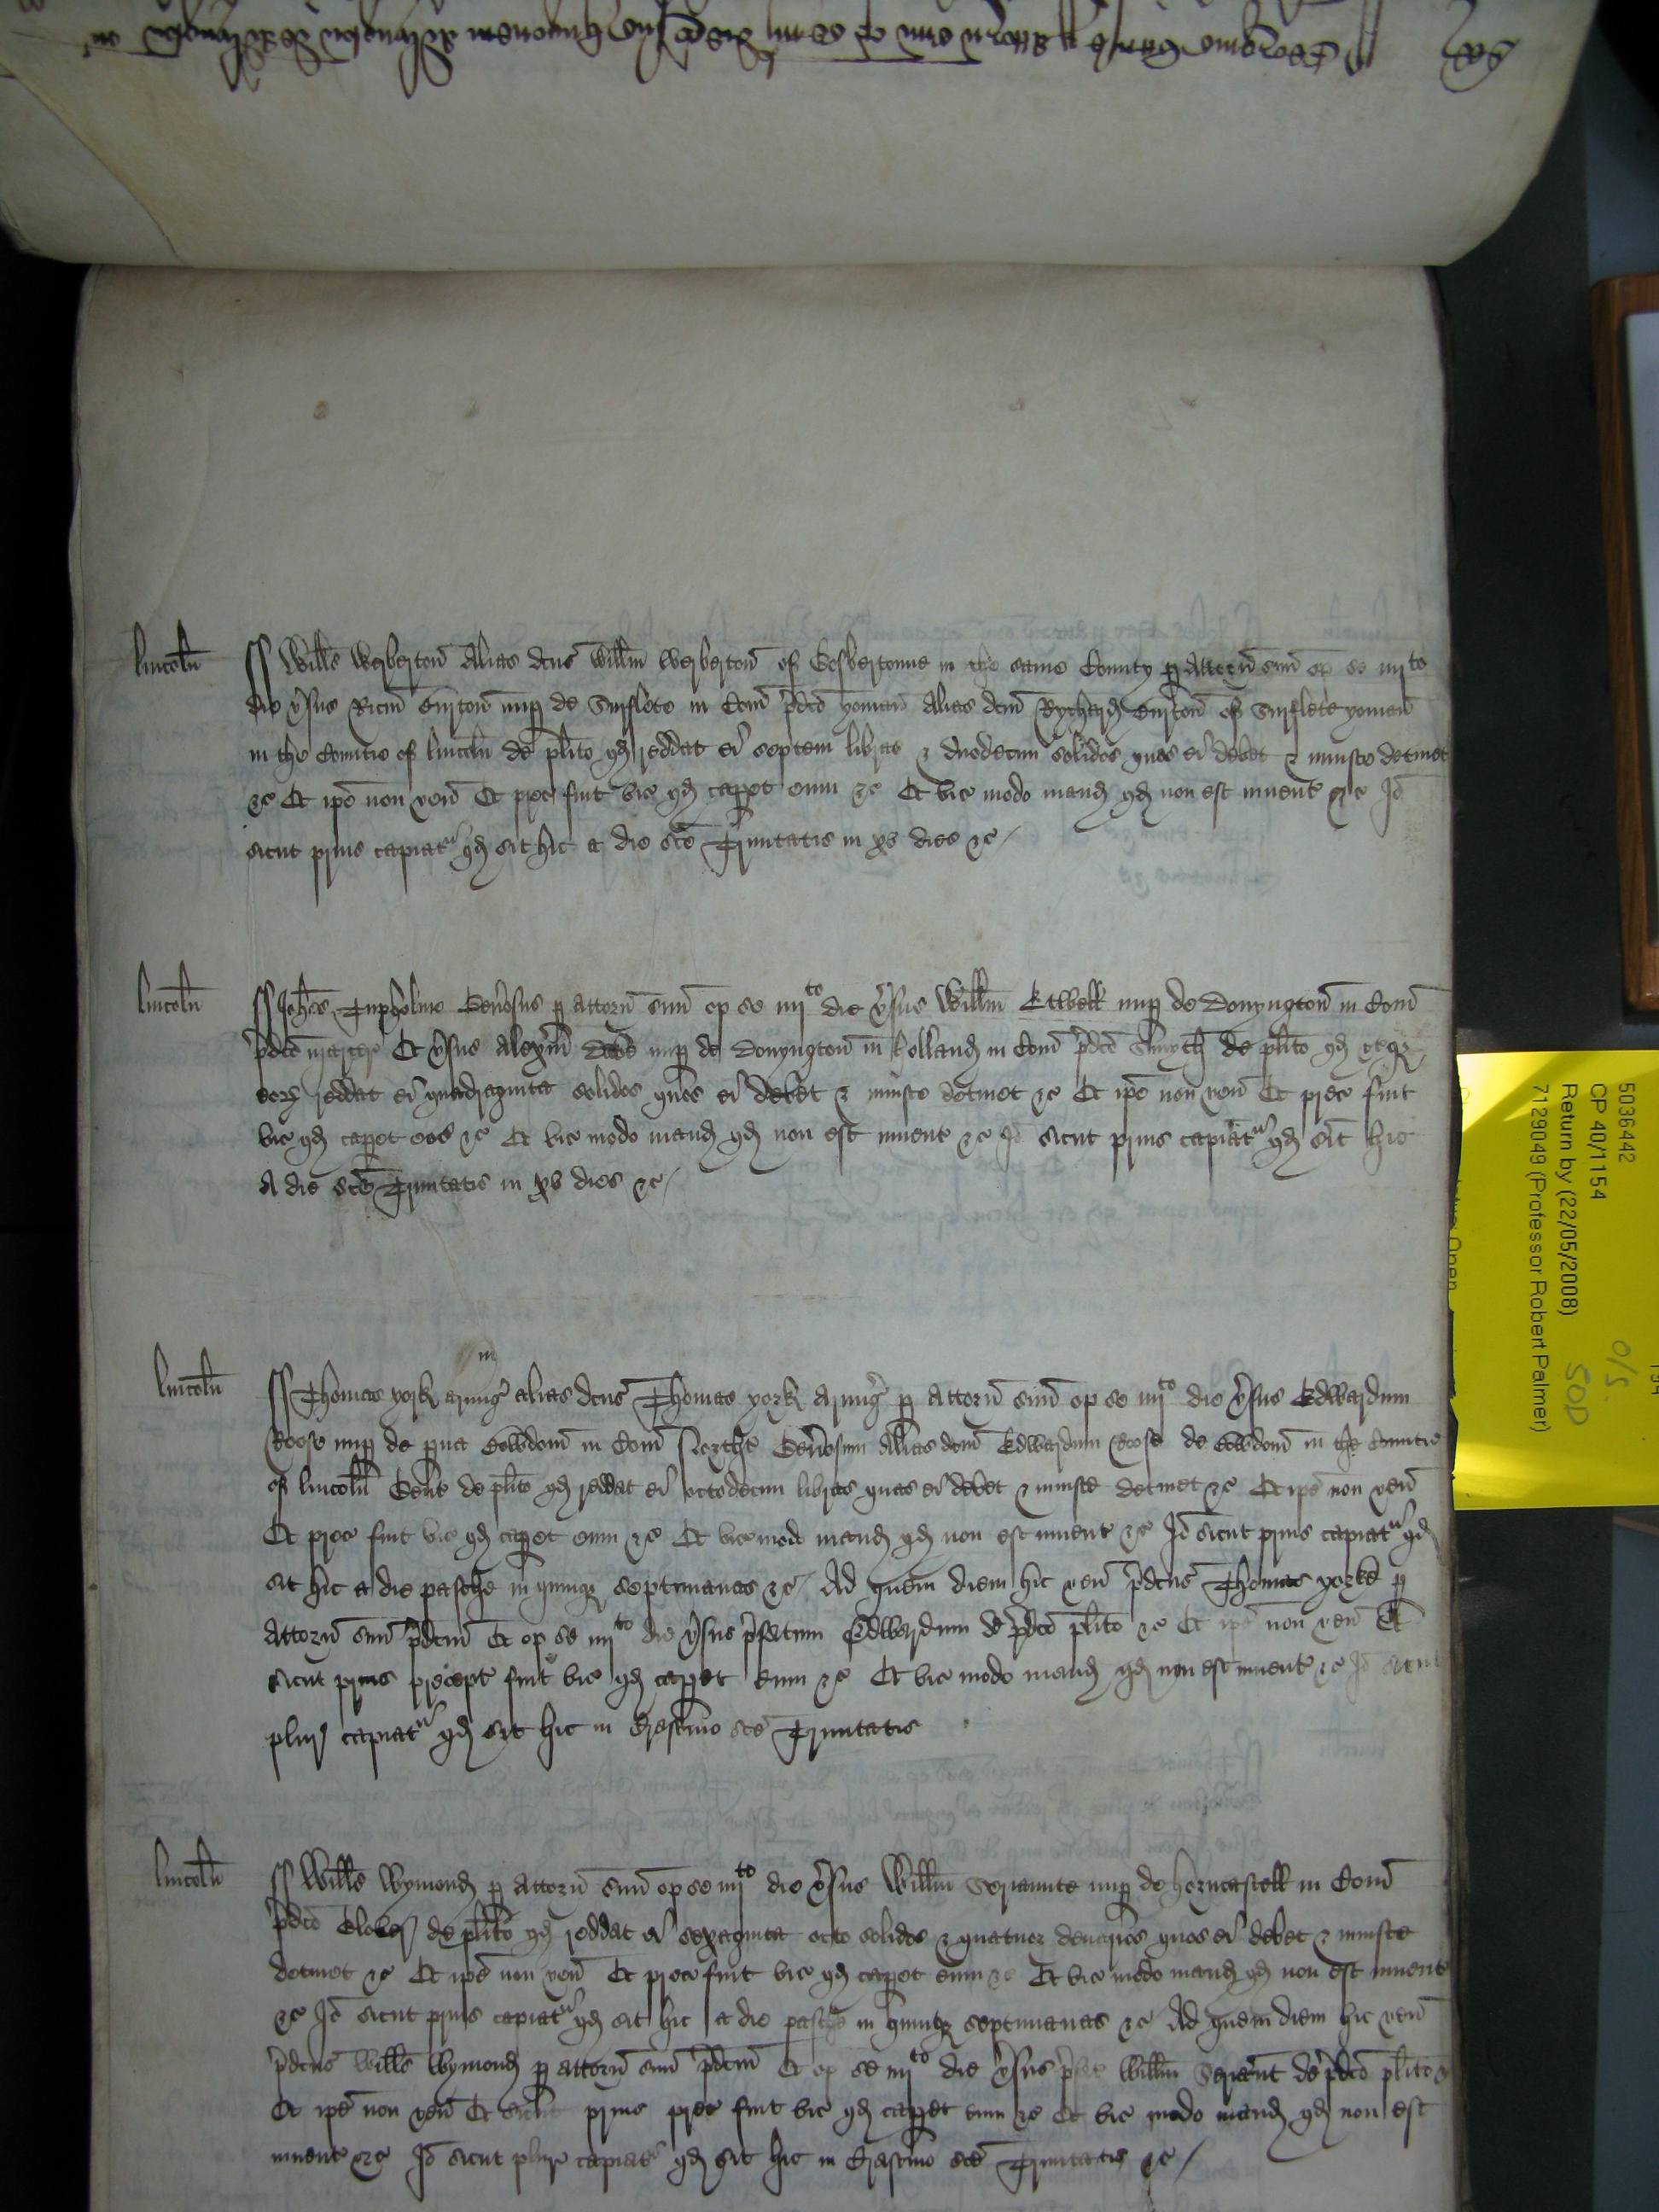 lincoln̄
ss Will̄s Werberton̄ Alias dc̄us Will̄m Werberton̄ of Gosbertonne in the same County p attorn̄ suū op se iiijto
die v̄sus Ricm̄ Gurton̄ nup de Surflete in Com̄ p̄dc̄o yoman̄ Alias dc̄m Rychard Gurton̄ of Surflete yoman̄
in the Comitie of lincoln̄ de pl̄ito qd reddat ei septem libras & duodecim solidos quos ei debet & iniuste detinet
&c Et ip̄e non ven̄ Et prec fuit vic qd caperet eum &c Et vic modo mand qd non est invent &c Iō
sicut prius capiatur qd sit hic a die sc̄e Trinitatis in xv dies &c
lincoln̄
ss Joh̄es Tupholme Gen̄osus p attorn̄ suū op se iiijto die v̄sus Will̄m Etwell nup de Donyngton̄ in Com̄
p̄dc̄o Et v̄sus Alex̄m nup de Donyngton̄ in holland in Com̄ p̄dc̄o Smyth de pl̄ito qd uterq
eor reddat ei quadraginta solidos quos ei debet & iniuste detinet &c Et ip̄e non ven̄ Et prec fuit
vic qd caperet eos &c Et vic modo mand qd non est invent &c Iō sicut prius capiatur qd sit hic
A die sc̄e Trinitatis in xv dies &c
lincoln̄
ss Thomas york armiḡ alias dc̄us Thomas york Armiḡ p Attorn̄ suū op se iiijto die v̄sus Edwardum
Roose nup de in Com̄ Gen̄osum Alias dc̄m Edwardum Roose de in the Countie
of lincoln̄ Gent de pl̄ito qd reddat ei octodecim libras quas ei debet & iniuste detinet &c Et ip̄e non ven̄
Et prec fuit vic qd caperet eum &c Et vic modo mand qd non est invent &c Iō sicut prius capiatur qd
sit hic a die pasche in quinq septimanas &c Ad quem diem hic ven̄ p̄dc̄us Thomas yorke p
Attorn̄ suū p̄dc̄m Et op se iiijto die v̄sus p̄fatum Edwardum de p̄dc̄o pl̄ito &c Et ip̄e non ven̄ Et
sicut prius precept fuit vic qd caperet eum &c Et vic modo mand qd non est invent &c Iō sicut
plur capiatur qd sit hic in Crastino sc̄e Trinitatis
lincoln̄
ss Will̄s Wymond p Attorn̄ suū op se iiijto die v̄sus Will̄m Seriaunte nup de horncastell in Com̄
p̄dc̄o de pl̄ito qd reddat ei sexaginta octo solidos & quatuor denarios quos ei debet & iniuste
detinet &c Et ip̄e non ven̄ Et prec fuit vic qd caperet eum &c Et vic modo mand qd non est invent
&c Iō sicut prius capiatur qd sit hic a die pasche in quinq septimanas &c Ad quem diem hic ven̄
p̄dc̄us Will̄s Wymond p attorn̄ suū p̄dc̄m Et op se iiijto die v̄sus p̄fat Will̄m Seriant de p̄dc̄o pl̄ito &c
Et ip̄e non ven̄ Et sicut prius prec fuit vic qd caperet eum &c Et vic modo mand qd non est
invent &c Iō sicut plur capiatur qd sit hic in Crastino sc̄e Trinitatis &c
5036442
CP 40/1154
Return by (22/05/2008)
7129049 (Professor Robert Palmer)
O/S